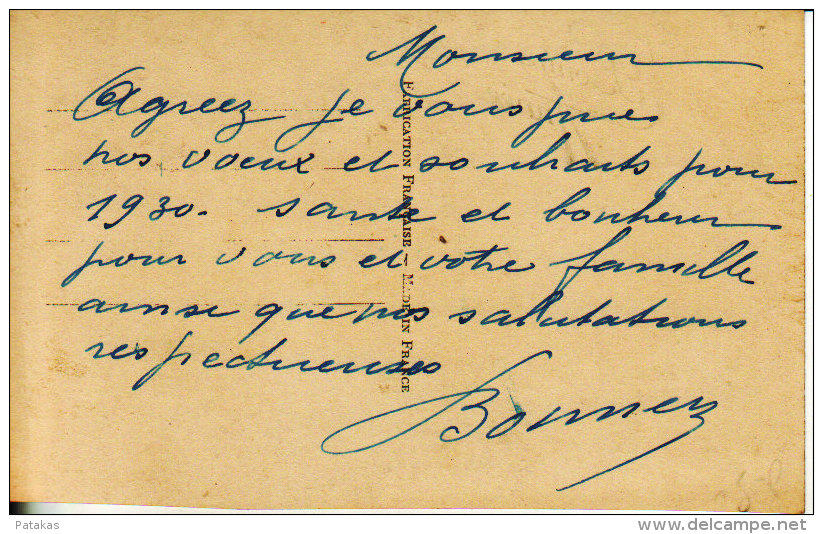 Monsieur
Agreez je vous prie
nos voeux et souhaits pour
1930. sante et bonheur
pour vous et votre famille
ainsi que nos salutations
respectueuses
Bonnez
FABRICATION FRANÇAISE — MADE IN FRANCE
Patakas
www.delcampe.net